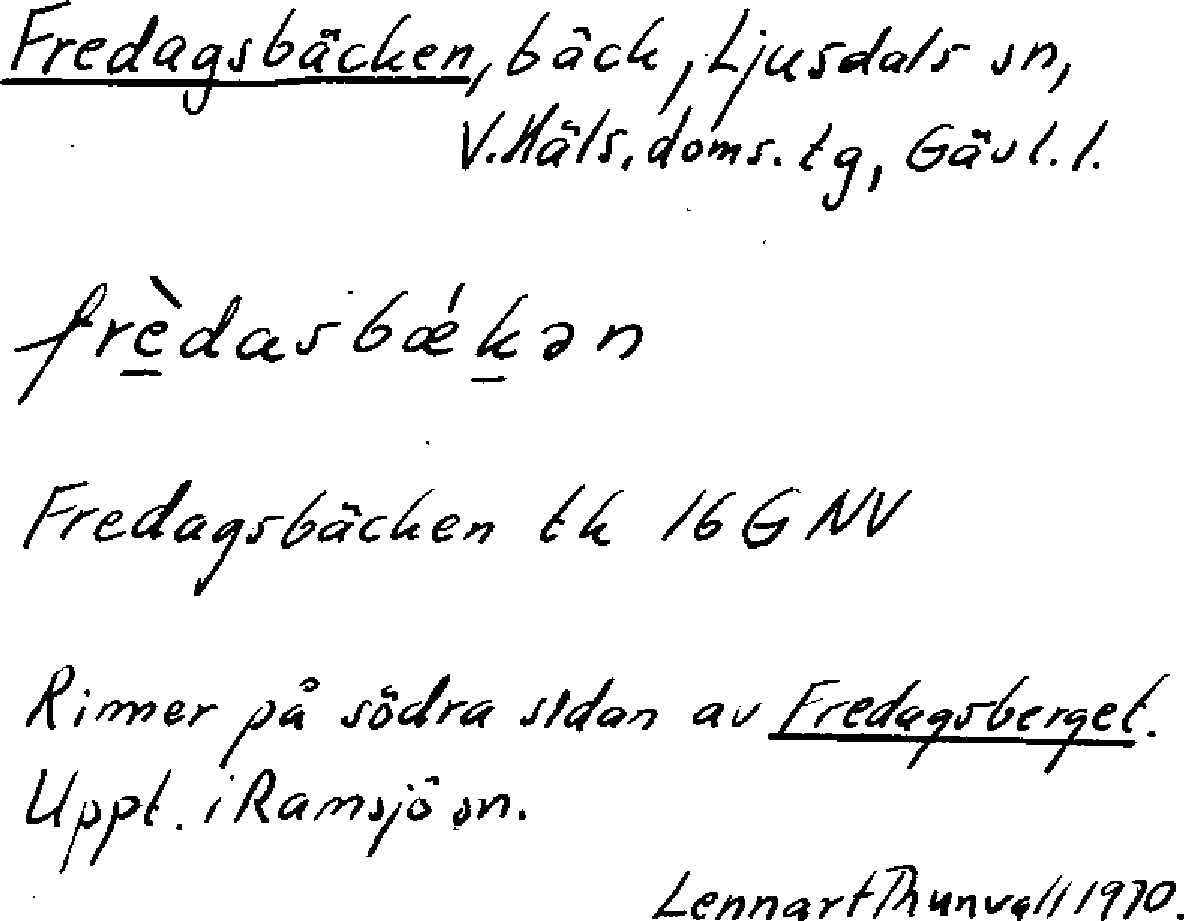 Fredagsbäcken, bäck, Ljusdals sn,
V. Häls. doms. tg, Gävl. l.
frèdasbǽkən
Fredagsbäcken tk 16 G NV
Rinner på södra sidan av Fredagsberget.
Uppt. i Ramsjö sn.
Lennart Thunvall 1970.